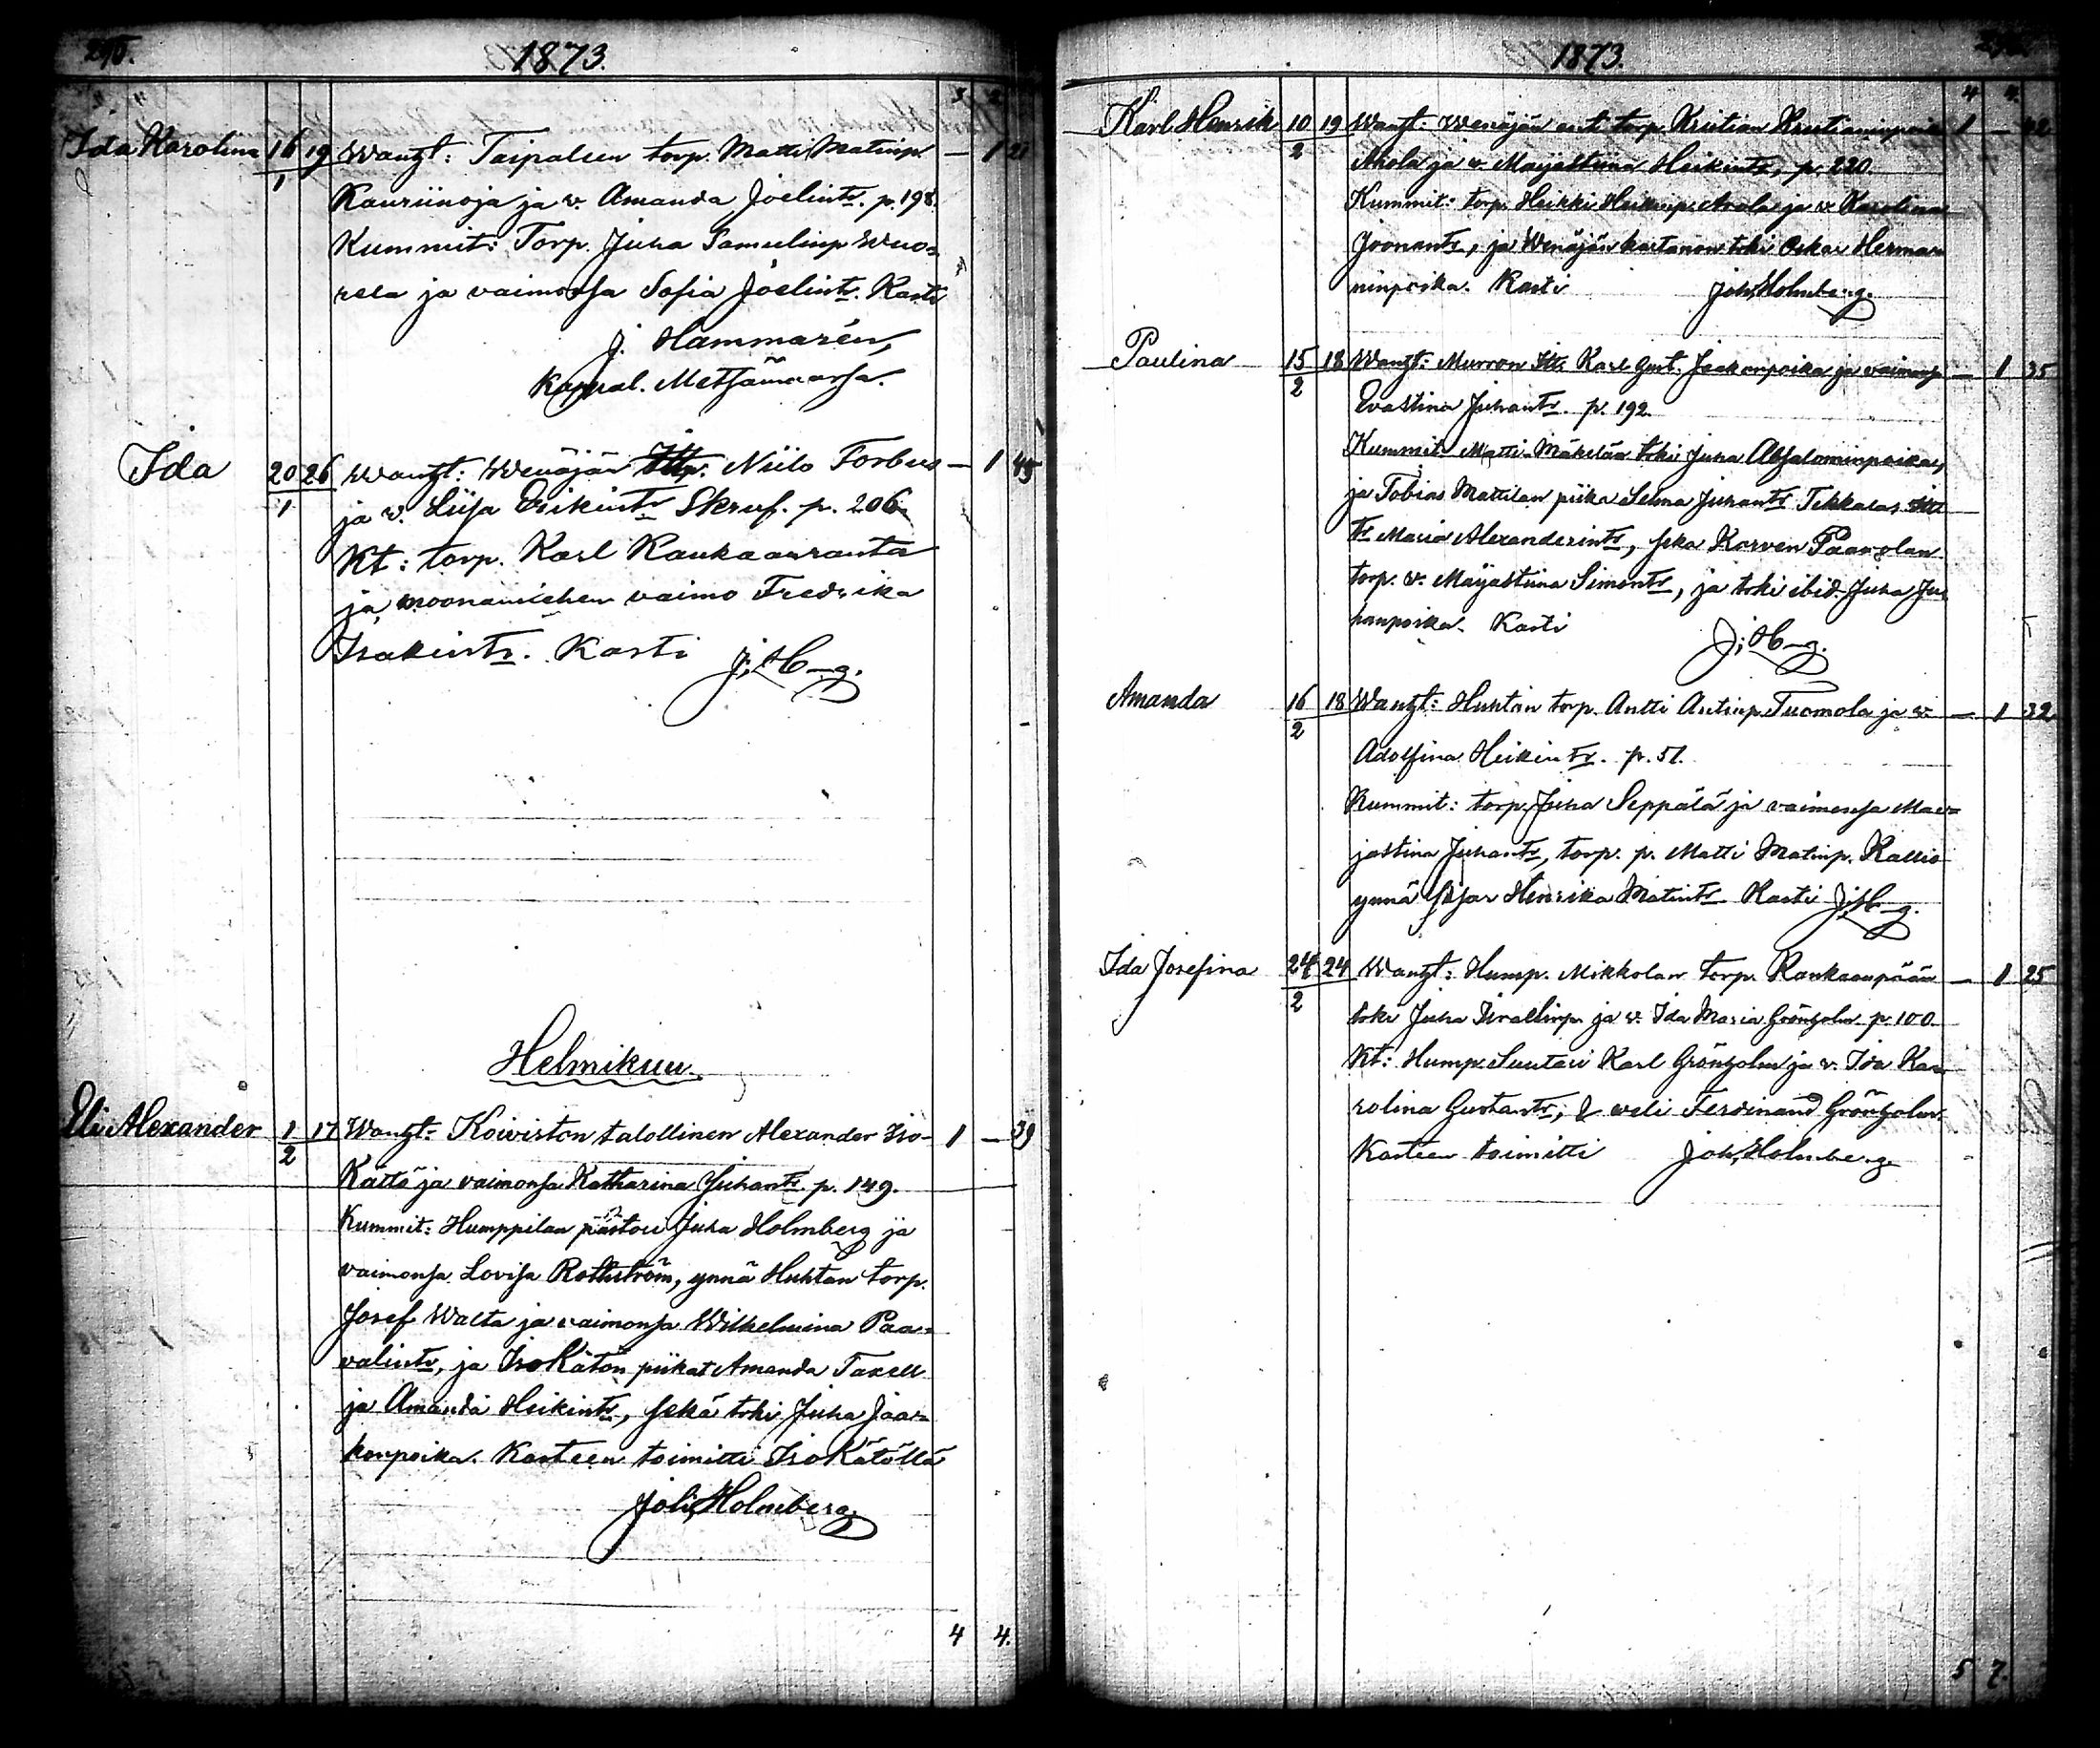 295.
1873.
3 2
Ida Karolina 16/1 19 Wanht: Taipaleen torp. Matti Matinp. — 1 21
Kauriinoja ja v. Amanda Joelintr. p. 198.
Kummit: Torp. Juha Samulinp Wuo=
rela ja vaimonsa Sofia Joelintr. Kasti
J. Hammarén,
Kappal. Metsämaarsa.
Ida 20/1 26 Wanht: Wenäjän Itp. Niilo Forbus — 1 45
ja v. Liisa Erikintr Skruf. p. 206
Kt: torp. Karl Raukaanranta
ja moonamiehen vaimo Fredrika
Isakintr. Kasti J; H–g.
Helmikuu.
Eli Alexander 1/2 17 Wanht: Koiviston talollinen Alexander Iso- 1 — 39
Kätö ja vaimonsa Katharina Juhantr. p. 149.
Kummit: Humppilan pastori Juha Holmberg ja
vaimonsa Lovisa Rothström, ynnä Huhtan torp.
Josef Walta ja vaimonsa Wilhelmina Paa=
valintr, ja IsoKätön piikat Amanda Taxell
ja Amanda Heikintr, sekä trki Juha Jaa=
konpoika. Kasteen toimitti IsoKätöllä
Joh; Holmberg
4 4.
1873.
4 4.
Karl Henrik 10/2 19 Wanht: Wenäjän torp. Kristian Kristianinpoika 1 — 42
Ahola ja v. Maijastiina Heikintr, p. 220.
Kummit: torp. Heikki Heikinp. Ahola ja v. Karolina
Joonantr, ja Wenäjän kartanon trki Oskar Herma=
ninpoika. Kasti Joh; Holmberg.
Paulina 15/2 18 Wanht: Murron Itt. Karl Gust. Jaakonpoika ja vaimonsa — 1 35
Evastina Juhantr. p. 192.
Kummit: Matti-Mäkelän trki Juha Absalominpoika,
ja Tobias Mattilan piika Selma Juhantr Tekkalas. Itt
tr Maria Alexanderintr, seka Korven Paavolan
torp. v. Maijastiina Simontr, ja trki ibid. Juha Ju=
hanpoika. Kasti J; H–g.
Amanda 16/2 18 Wanht: Huhtan torp. Antti Antinp. Tuomola ja v. — 1 32
Adolfina Heikintr. p. 51.
Kummit: torp. Juha Seppälä ja vaimonsa Ma=
jastina Juhantr, torp. p. Matti Matinp. Kallio
ynnä sisar Henrika Matintr Kasti J; H–g.
Ida Josefina 24/2 24 Wanht: Hump. Mikkolan torp. Raukaanpään — 1 25
trki Juha Israelinp. ja v. Ida Maria Grönholm. p. 100.
Kt: Hump. Suutari Karl Grönholm ja v. Ida Ka=
rolina Gustavstr, & veli Ferdinand Grönholm.
Kasteen toimitti Joh; Holmberg.
5 7.